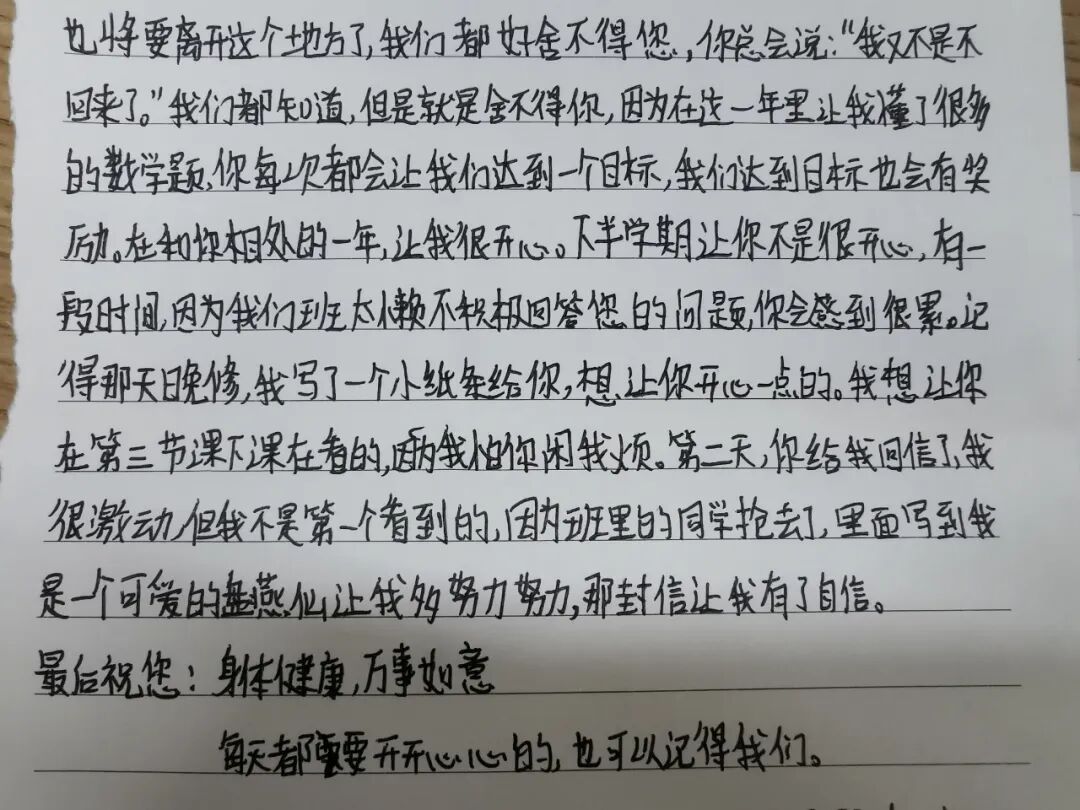 也将要离开这个地方了,我们都好舍不得您,你总会说:"我又不是不
回来了。"我们都知道,但是就是舍不得你,因为在这一年里让我懂了很多
的数学题,你每次都会让我们达到一个目标,我们达到目标也会有奖
励。在和你相处的一年,让我很开心。下半学期让你不是很开心,有一
段时间,因为我们班太懒不积极回答您的问题,你会感到很累。记
得那天晚修,我写了一个小纸条给你,想让你开心一点的。我想让你
在第三节课下课在看的,因为我怕你闲我烦。第二天,你给我回信了,我
很激动,但我不是第一个看到的,因为班里的同学抢去了,里面写到我
是一个可爱的燕仙让我多努力努力,那封信让我有了自信。
最后祝您:身体健康,万事如意
每天都要开开心心的,也可以记得我们。